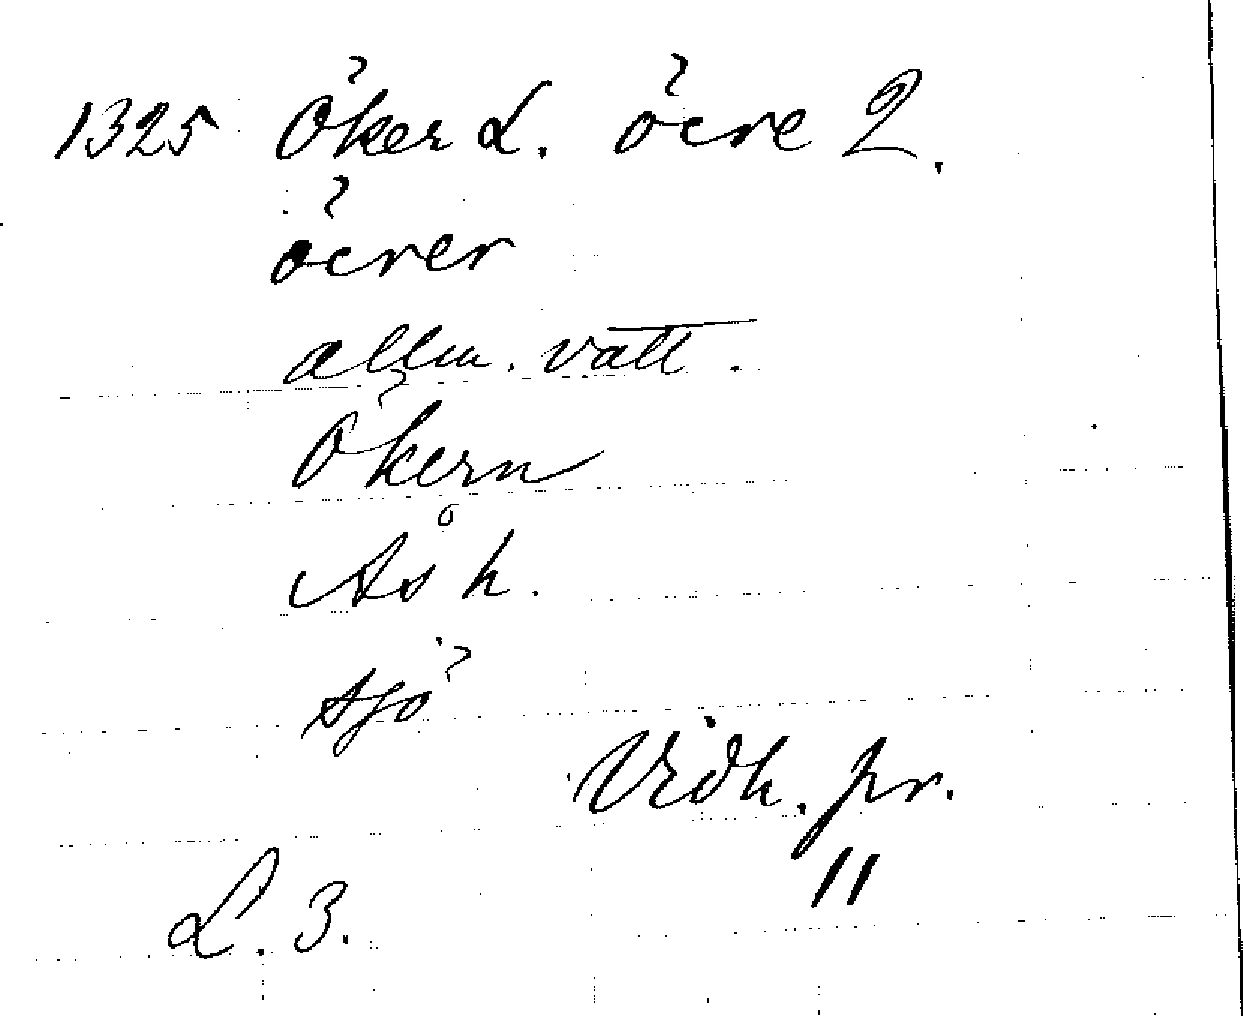 1325 Öker L. öcre 2.
öcrer
allm. vatt.
Ökern
Ås h.
sjö
Vidh. pr.
L. 3. "